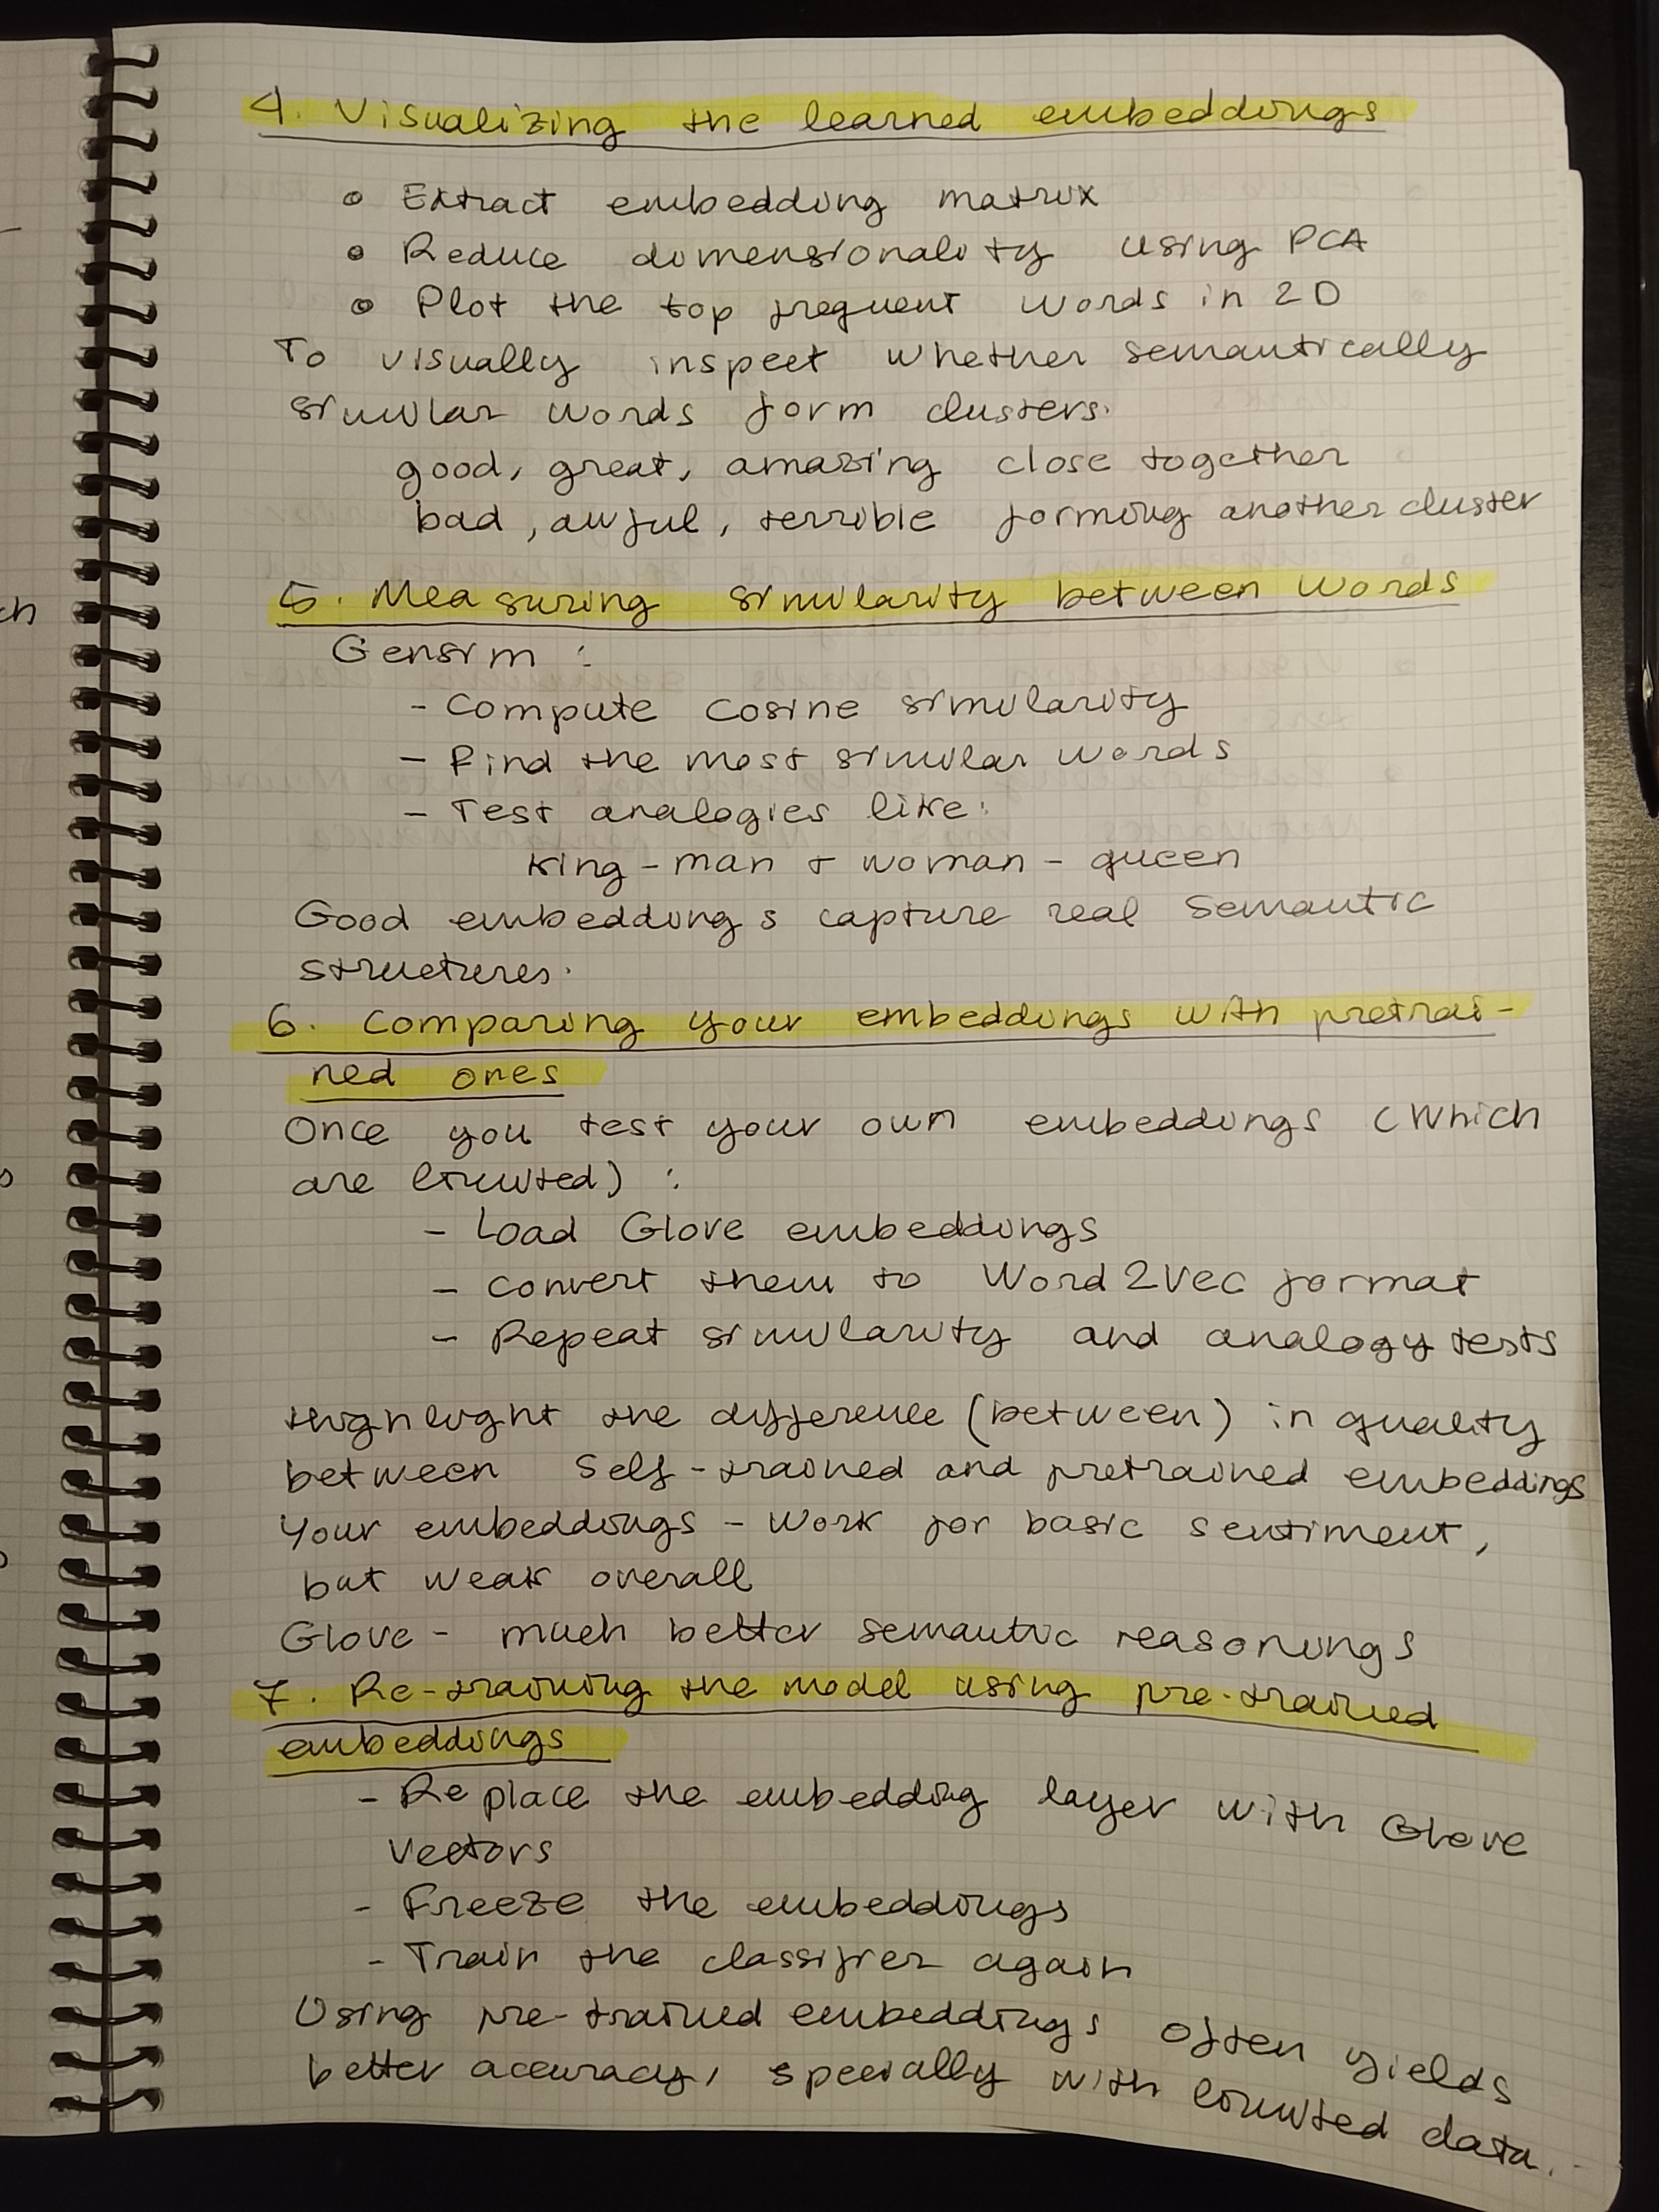 4. Visualizing the learned embeddings
o Extract embedding matrix
o Reduce dimensionality using PCA
o Plot the top frequent words in 2D
To visually inspect whether semantically
similar words form clusters.
good, great, amazing close together
bad, awful, terrible forming another cluster
5. Measuring similarity between words
Gensim :
- Compute cosine similarity
- Find the most similar words
- Test analogies like:
King - man + woman - queen
Good embeddings capture real semantic
structures.
6. Comparing your embeddings with pretrai-
ned ones
Once you test your own embeddings (which
are limited) :
- Load Glove embeddings
- Convert them to Word2Vec format
- Repeat similarity and analogy tests
Highlight the difference (between) in quality
between self-trained and pretrained embeddings
Your embeddings - work for basic sentiment,
but weak overall
Glove - much better semantic reasonings
7. Re-training the model using pre-trained
embeddings
- Replace the embedding layer with Glove
vectors
- Freeze the embeddings
- Train the classifier again
Using pre-trained embeddings often yields
better accuracy, specially with limited data.